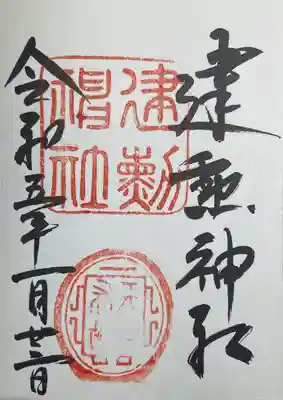 建勲神社
建勳
神社
令和五年一月廿二日